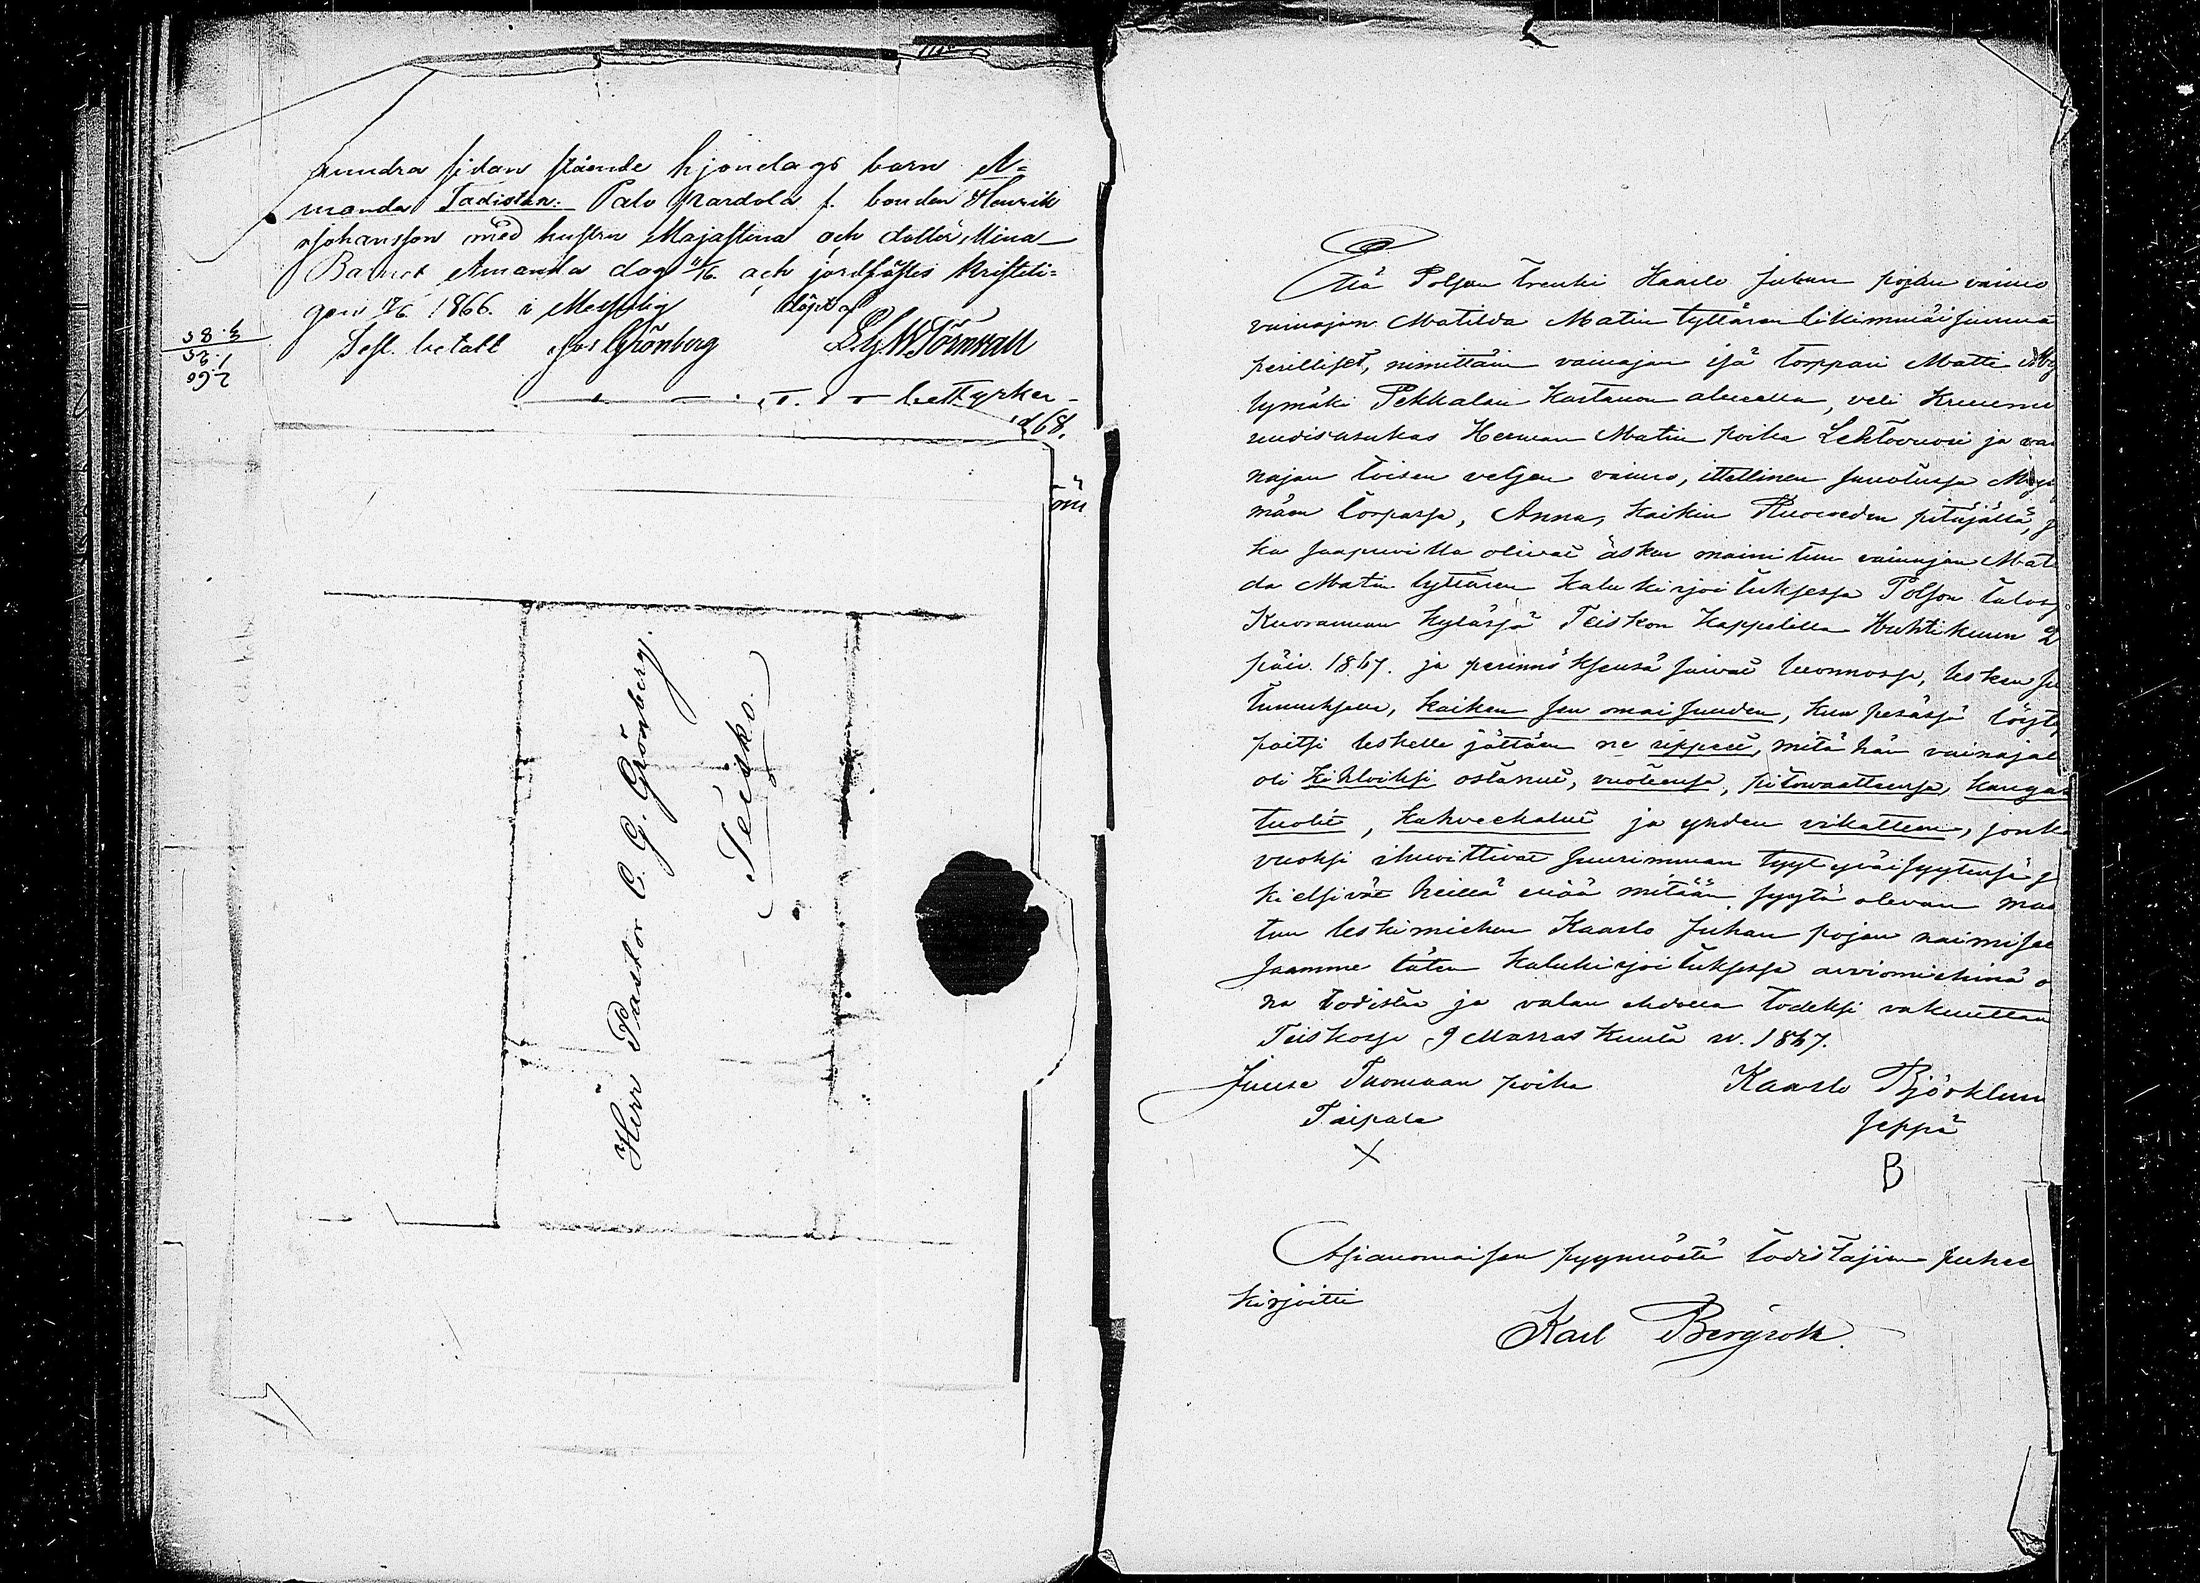 andra sidan stående hjondags barn A=
manda Tadistan. Palo Mardola f. bonden Henrik
Johansson med hustru Majastina och dotter Mina
Barnet Amanda dog 11/6. och jordfästes kristeli=
gen 17/6 1866. i Messuby
3.85
1.25
2.60
Sefl. betalt Grönberg Törnwall
bettyrker
68.
Herr Pastor C. G. Grönberg.
Teisko.
Että Poljon trenki Kaarlo Juhan pojan vaimo
vainajan Matilda Matin tyttären likimmäisimmä
perilliset, nimittäin vainajan isä torppari Matti
lymäki Pekkalan Kartanon alueella, veli Kruunu
uudisasukas Herman Matin poika Lehtovuori ja vai
najan toisen veljen vaimo, ittellinen
mäen torpassa, Anna, kaikin Ruoveden pitäjällä, j
ka saapuvilla olivat äsken mainitun vainajan Mat
da Matin tyttären kalukirjoituksessa Poljon talos
Kuoranan kylässä Teiskon Kappelilla Huhtikuun 2
päiv. 1867. ja perinnöksensä saivat luonnossa, lesken su
tumuksella, kaiken sen omaisuuden, kun pesässä löyty
paitsi leskelle jättäen ne rippeet, mitä hän vainajal
oli kihloiksi ostanut, vuoteensa, pitovaatteensa, kangas
tuolit, kahveekalut ja yhden vikatteen, jonka
vuoksi ilmoittivat suurimman tyytyväisyytensä j
kielsivät heillä enää mitään syytä olevan
tun leskimiehen Kaarlo Juhan pojan naimisee
Saamme täten kalukirjoituksessa arviomiehinä o
na todistaa ja valan ehdolla todeksi vakuuttaa
Teiskossa 9 Marraskuuta w. 1867.
Juuse Tuomaan poika Kaarlo Björklun
Taipale Seppä
X B
Asianomaisen pyynnöstä todistajien puhee
kirjoitti
Karl Bergroth.